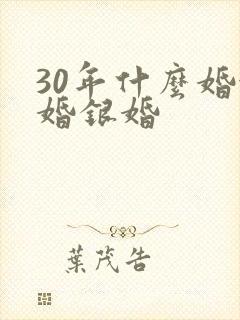 30年什麼婚
婚銀婚
葉茂告